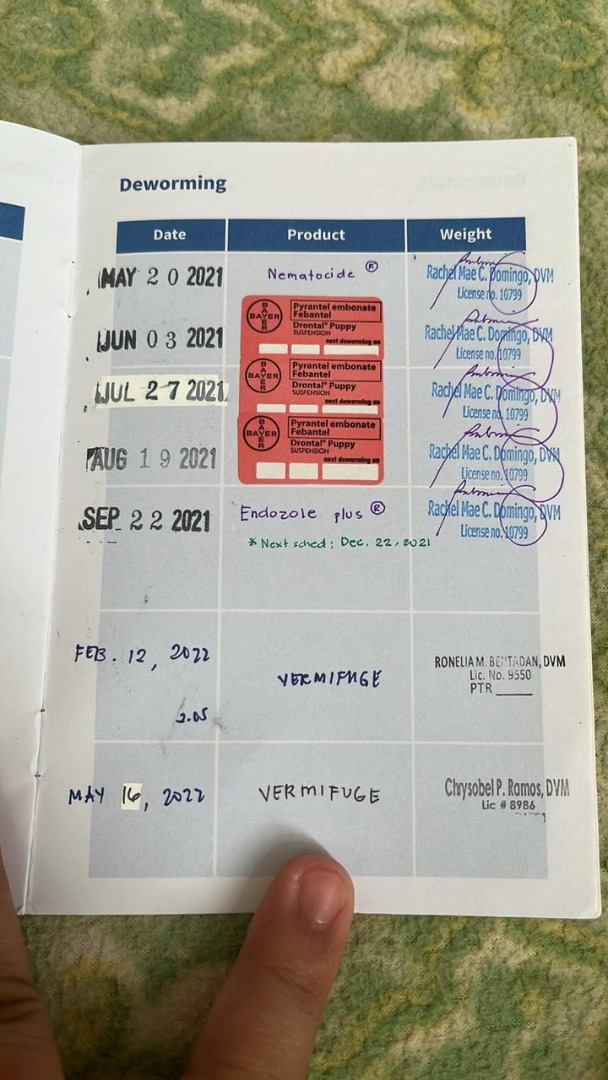 Deworming
Date Product Weight
MAY 20 2021 Nematocide ® Rachel Mae C. Domingo, DVM
License no. 10799
JUN 03 2021 BAYER BAYER Pyrantel embonate
Febantel
Drontal® Puppy
SUSPENSION
next deworming on
Rachel Mae C. Domingo, DVM
License no. 10799
JUL 27 2021 BAYER BAYER Pyrantel embonate
Febantel
Drontal® Puppy
SUSPENSION
next deworming on
Rachel Mae C. Domingo, DVM
License no. 10799
AUG 19 2021 BAYER BAYER Pyrantel embonate
Febantel
Drontal® Puppy
SUSPENSION
next deworming on
Rachel Mae C. Domingo, DVM
License no. 10799
SEP 22 2021 Endozole plus ® Rachel Mae C. Domingo, DVM
License no. 10799
* Next sched: Dec. 22, 2021
FEB. 12, 2022 VERMIFUGE RONELIA M. DVM
Lic. No. 9550
PTR
MAY 16, 2022 VERMIFUGE Chrysobel P. Ramos, DVM
Lic # 8986